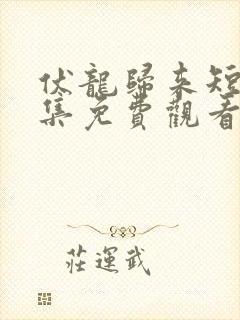 伏龍歸来短
集免費觀看
莊運武